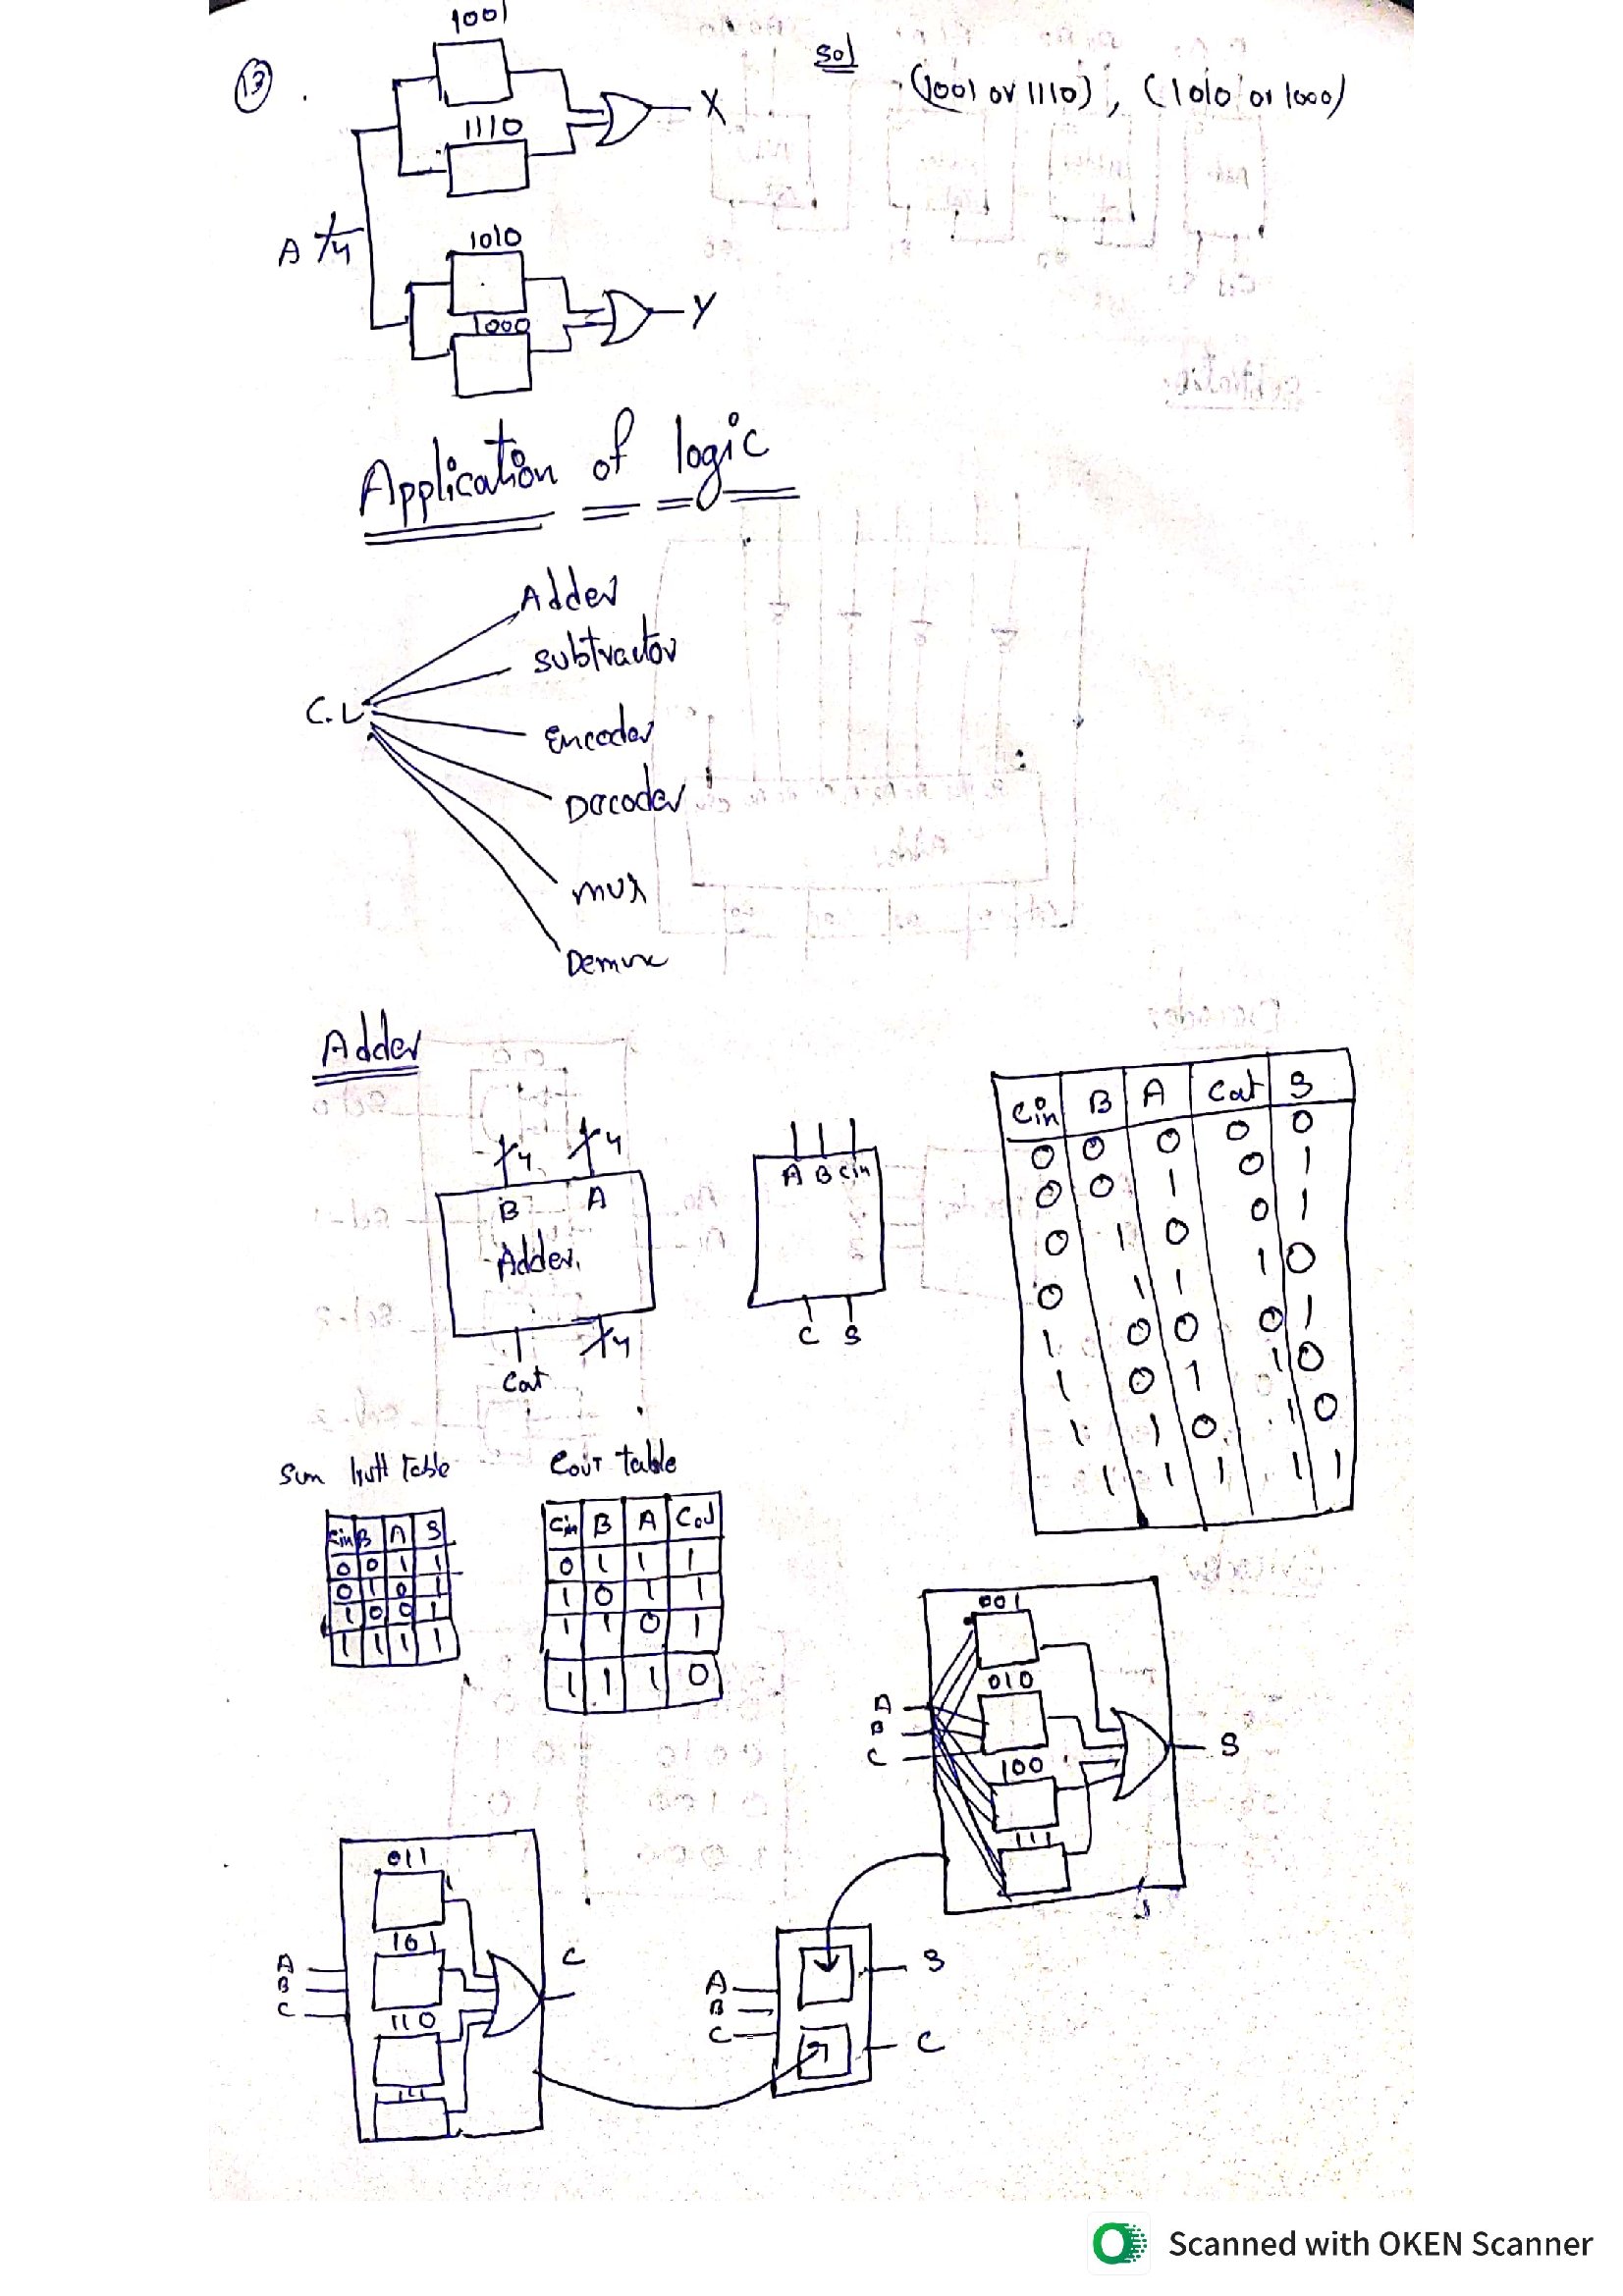 13.
1001
1110
A 4
X
1010
1000
Y
Sol
(1001 or 1110), (1010 or 1000)
Application of logic
C.L
Adder
Subtractor
Encoder
Decoder
mux
Demux
Adder
4 4
B A
Adder
4
Cout
A B Cin
C S
Cin B A Cout S
0 0 0 0 0
0 0 1 0 1
0 1 0 0 1
0 1 1 1 0
1 0 0 0 1
1 0 1 1 0
1 1 0 1 0
1 1 1 1 1
Sum truth table
Cin B A S
0 0 1 1
0 1 0 1
1 0 0 1
1 1 1 1
Cout table
Cin B A Cout
0 1 1 1
1 0 1 1
1 1 0 1
1 1 1 0
001
010
100
111
A
B
C
S
011
101
110
111
A
B
C
C
A
B
C
S
C
Scanned with OKEN Scanner